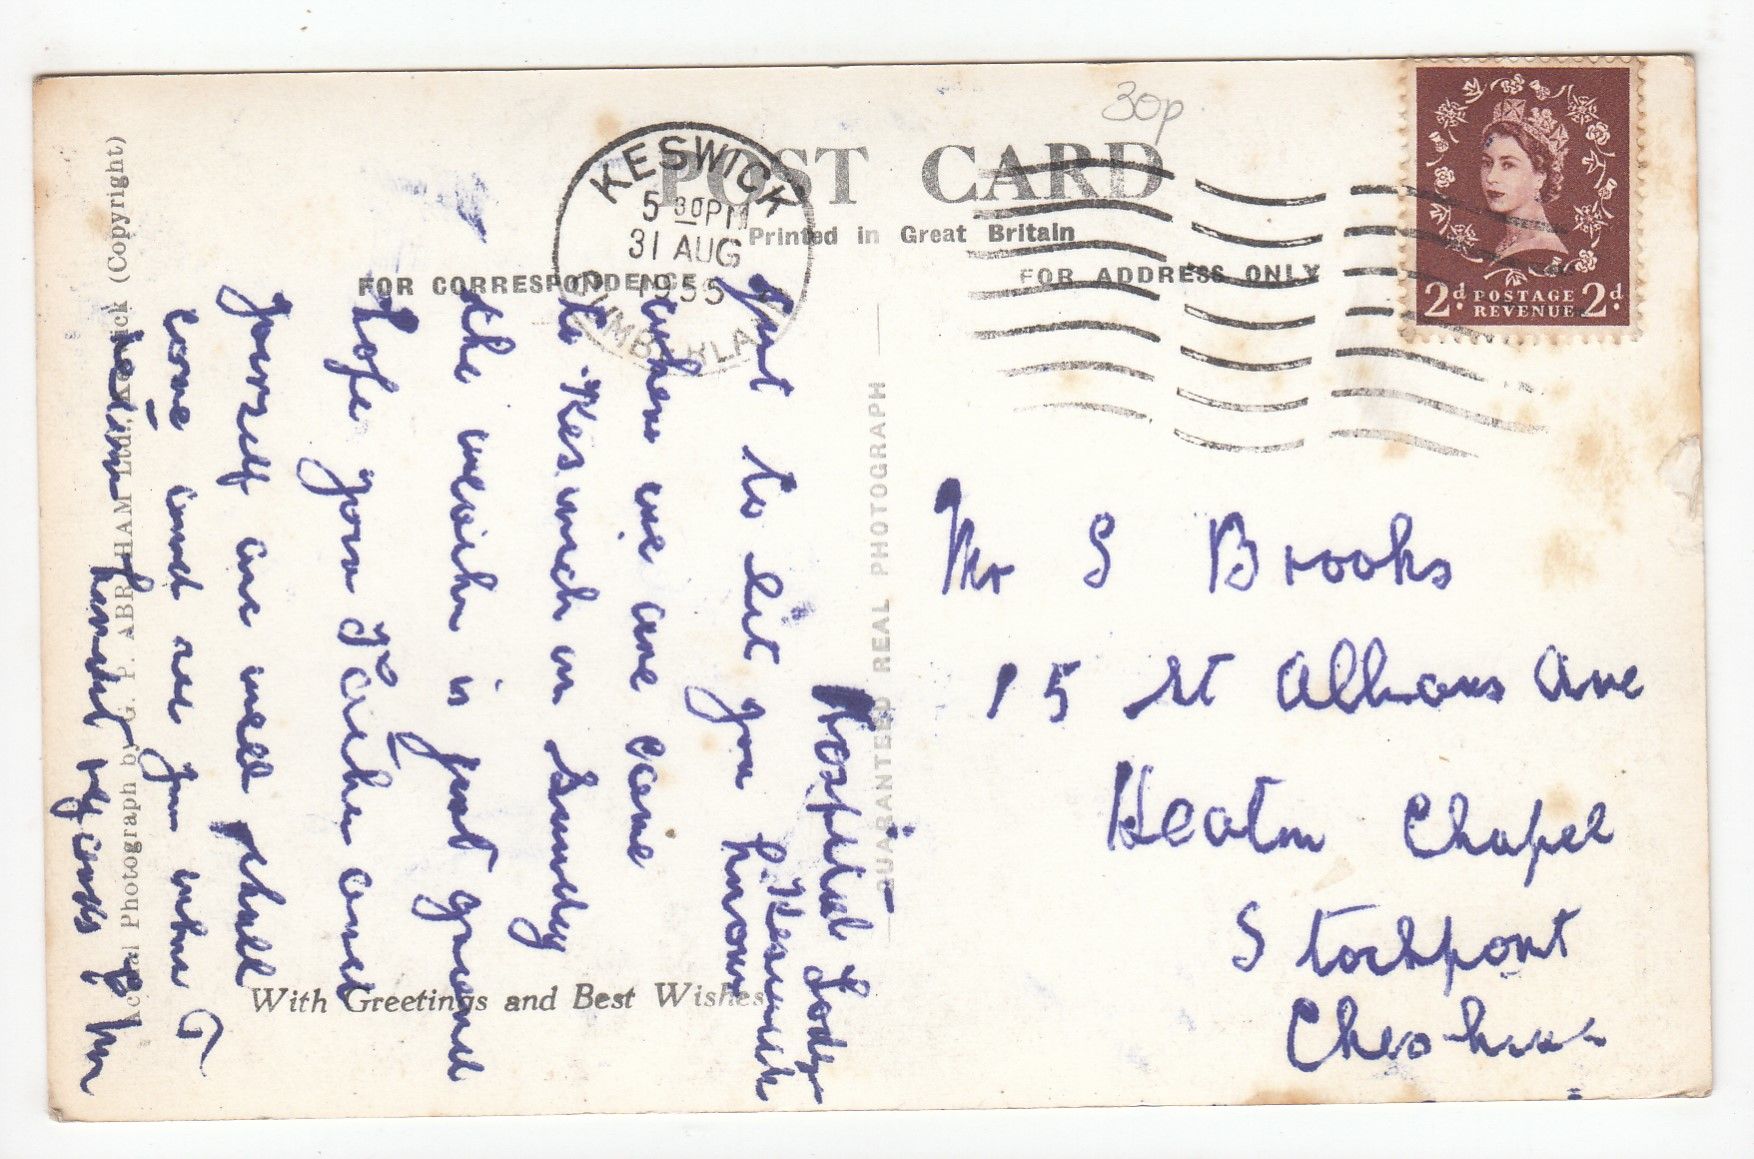 30p
POST CARD
Printed in Great Britain
FOR CORRESPONDENCE
FOR ADDRESS ONLY
KESWICK
5 30PM
31 AUG
1955
CUMBERLAND
2d. POSTAGE REVENUE 2d.
Hospital Lodge
Keswick
Just to let you know
where we are came
to Keswick on Sunday
the weather is just grand
hope you Father and
yourself are well shall
come and see you when I
return kindest regards
Mr S Brooks
15 St Albans Ave
Heaton Chapel
Stockport
Cheshire
With Greetings and Best Wishes
GUARANTEED REAL PHOTOGRAPH
Actual Photograph by G. P. ABRAHAM Ltd., Keswick (Copyright)